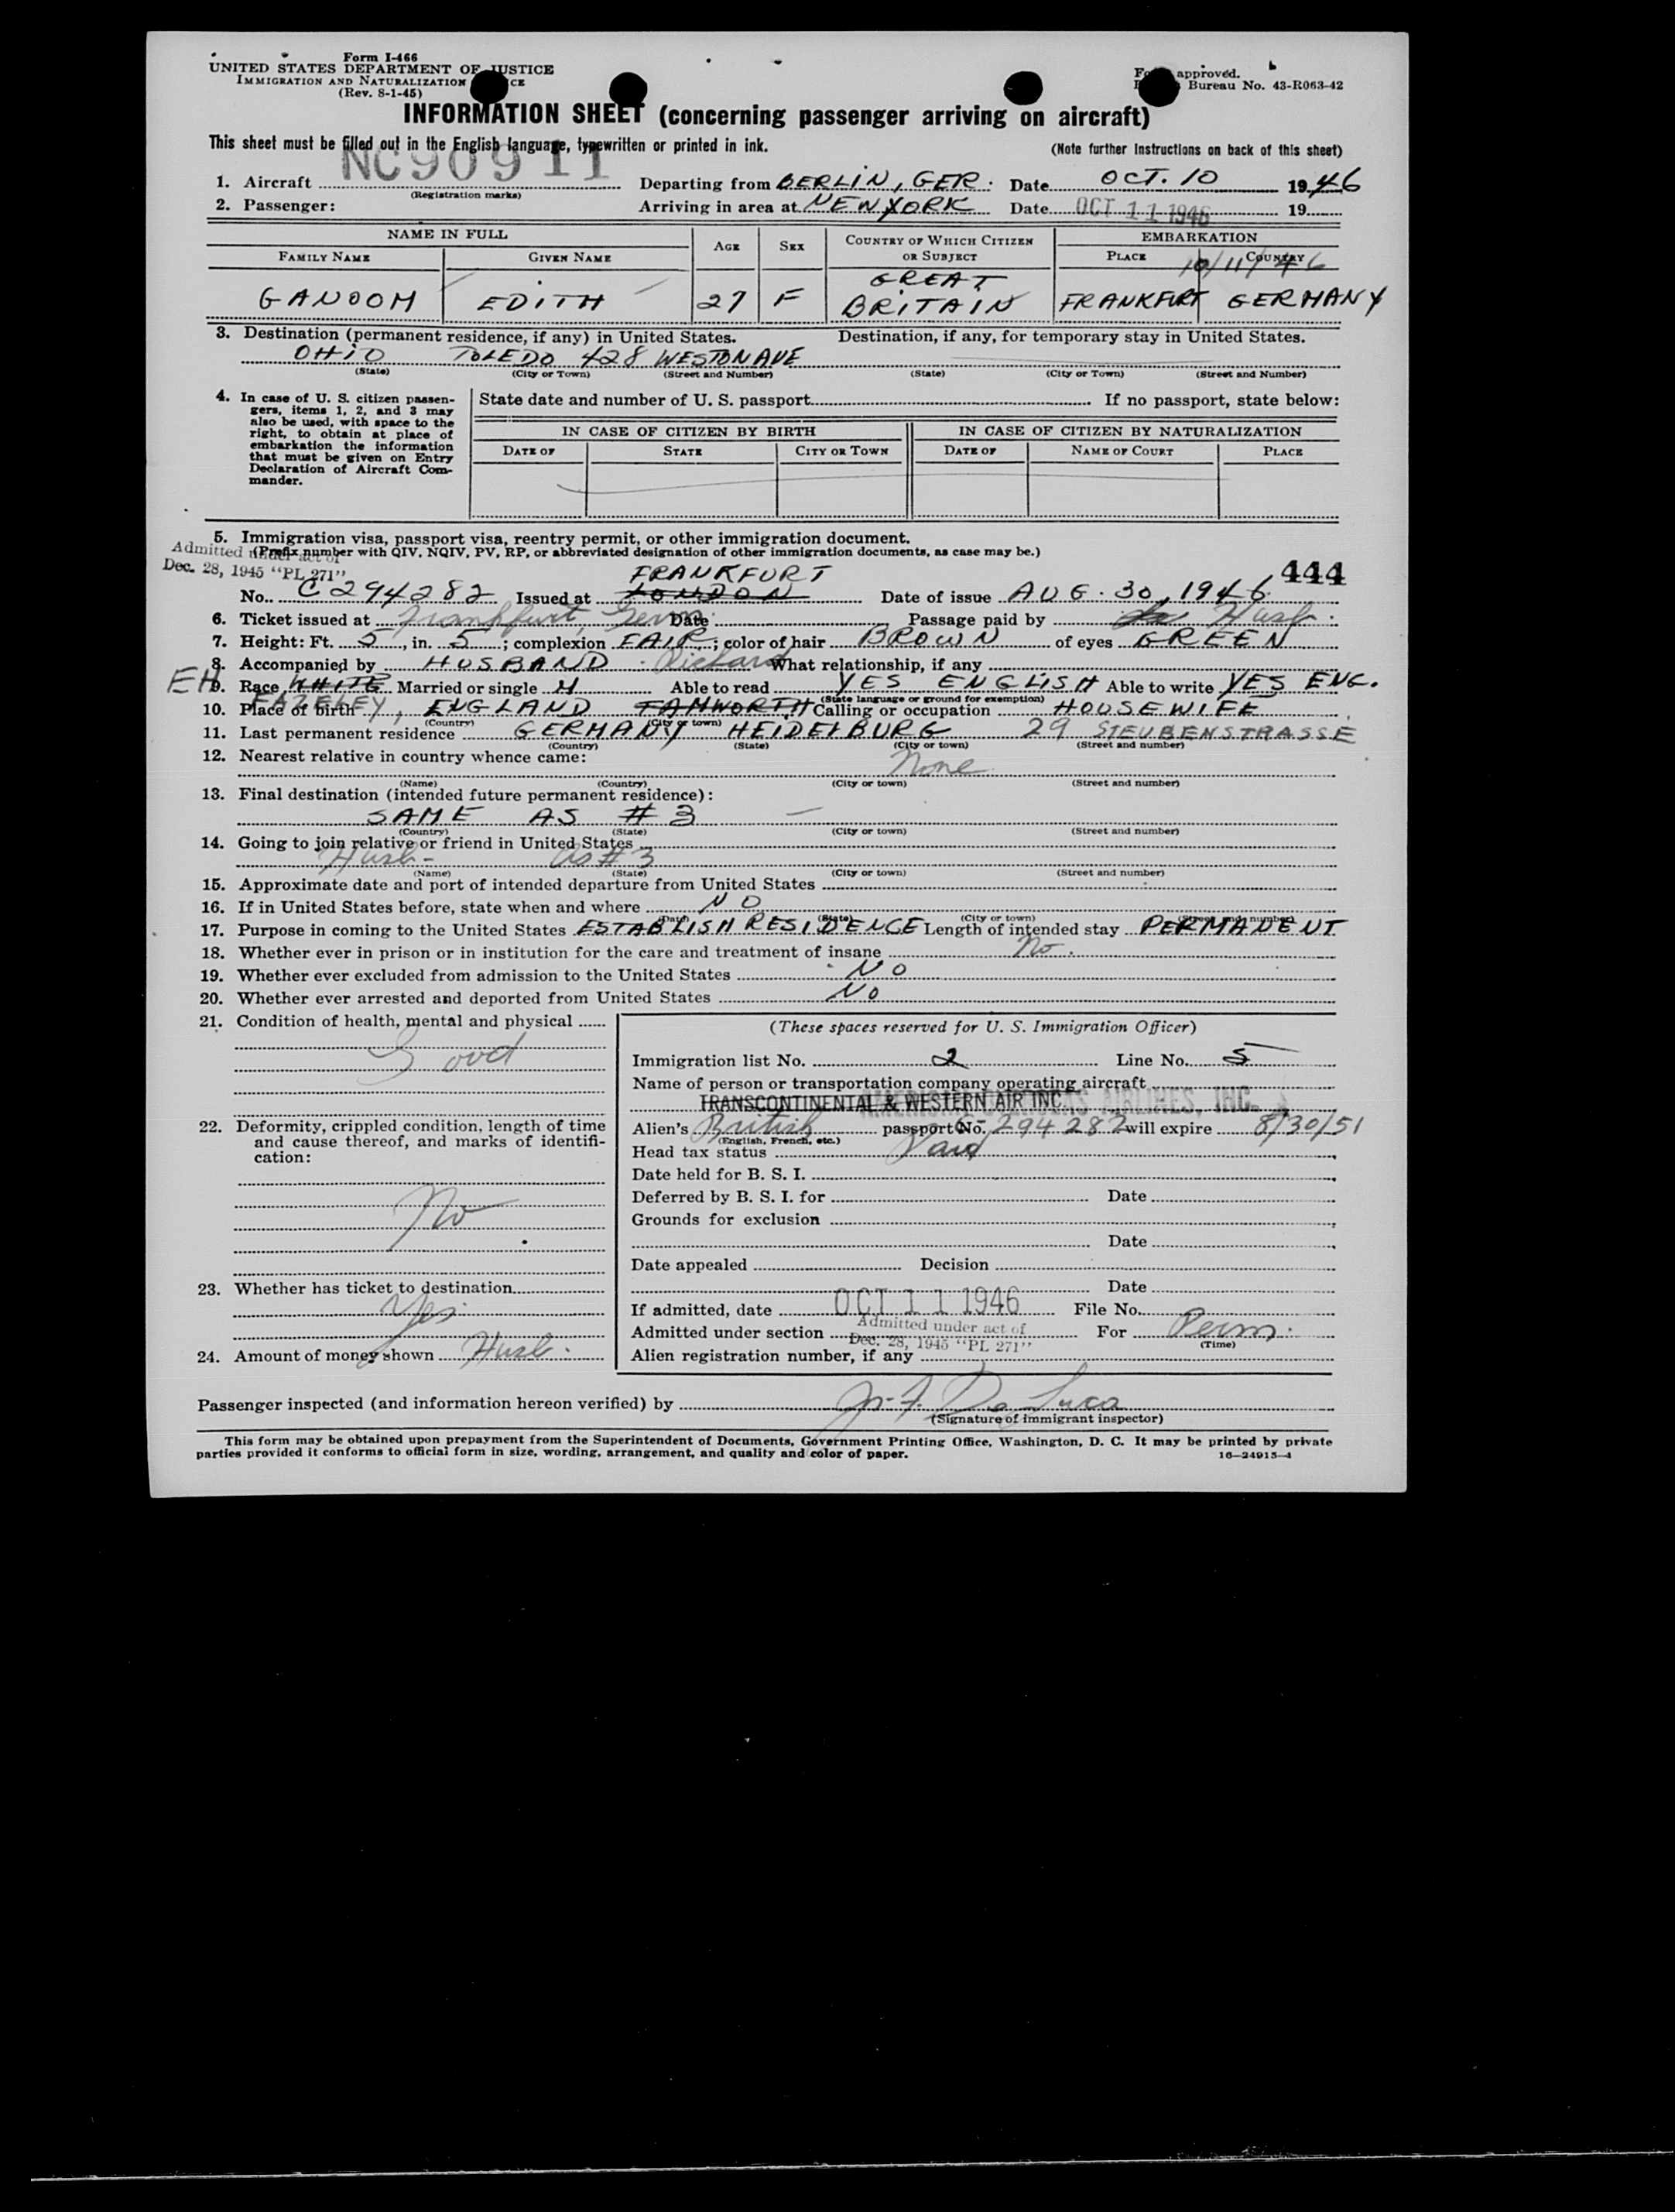 Form I-466
UNITED STATES DEPARTMENT OF JUSTICE
IMMIGRATION AND NATURALIZATION
(Rev. 8-1-45)
approved.
Bureau No. 43-R063-42
INFORMATION SHEET (concerning passenger arriving on aircraft)
This sheet must be filled out in the English language, typewritten or printed in ink.
(Note further instructions on back of this sheet)
NC90911
1. Aircraft Departing from BERLIN, GER. Date OCT. 10 1946
(Registration marks)
2. Passenger: Arriving in area at NEW YORK Date OCT 11 1946 19
NAME IN FULL AGE SEX COUNTRY OF WHICH CITIZEN OR SUBJECT EMBARKATION
FAMILY NAME GIVEN NAME PLACE COUNTRY
10/11/46
EDITH 27 F GREAT BRITAIN FRANKFURT GERMANY
3. Destination (permanent residence, if any) in United States. Destination, if any, for temporary stay in United States.
OHIO TOLEDO 428 WESTON AVE
(State) (City or Town) (Street and Number) (State) (City or Town) (Street and Number)
4. In case of U. S. citizen passengers, items 1, 2, and 3 may also be used, with space to the right, to obtain at place of embarkation the information that must be given on Entry Declaration of Aircraft Commander.
State date and number of U. S. passport If no passport, state below:
IN CASE OF CITIZEN BY BIRTH IN CASE OF CITIZEN BY NATURALIZATION
DATE OF STATE CITY OR TOWN DATE OF NAME OF COURT PLACE
5. Immigration visa, passport visa, reentry permit, or other immigration document.
(Prefix number with QIV, NQIV, PV, RP, or abbreviated designation of other immigration documents, as case may be.)
Admitted under act of
Dec. 28, 1945 "PL 271"
444
FRANKFURT
No. C294282 Issued at LONDON Date of issue AUG. 30, 1946
6. Ticket issued at Frankfurt, Germ. Date Passage paid by Husb.
7. Height: Ft. 5, in. 5; complexion FAIR; color of hair BROWN of eyes GREEN
8. Accompanied by HUSBAND Richard What relationship, if any
EH
9. Race WHITE Married or single M Able to read YES ENGLISH Able to write YES ENG.
(State language or ground for exemption)
10. Place of birth FAZELEY, ENGLAND TAMWORTH Calling or occupation HOUSEWIFE
(Country) (City or town)
11. Last permanent residence GERMANY HEIDELBURG 29 STEUBENSTRASSE
(Country) (State) (City or town) (Street and number)
12. Nearest relative in country whence came:
None
(Name) (Country) (City or town) (Street and number)
13. Final destination (intended future permanent residence):
SAME AS # 3
(Country) (State) (City or town) (Street and number)
14. Going to join relative or friend in United States
Husb- as # 3
(Name) (State) (City or town) (Street and number)
15. Approximate date and port of intended departure from United States
16. If in United States before, state when and where NO
(Date) (State) (City or town) (Street and number)
17. Purpose in coming to the United States ESTABLISH RESIDENCE Length of intended stay PERMANENT
18. Whether ever in prison or in institution for the care and treatment of insane No.
19. Whether ever excluded from admission to the United States NO
20. Whether ever arrested and deported from United States NO
21. Condition of health, mental and physical
Good
22. Deformity, crippled condition, length of time and cause thereof, and marks of identification:
No
23. Whether has ticket to destination
Yes
24. Amount of money shown Husb.
(These spaces reserved for U. S. Immigration Officer)
Immigration list No. 2 Line No. 5
Name of person or transportation company operating aircraft
TRANSCONTINENTAL & WESTERN AIR INC.
AIRLINES, INC.
Alien's British passport No. C-294282 will expire 8/30/51
(English, French, etc.)
Head tax status Paid
Date held for B. S. I.
Deferred by B. S. I. for Date
Grounds for exclusion
Date
Date appealed Decision
Date
If admitted, date OCT 11 1946 File No.
Admitted under section Admitted under act of Dec. 28, 1945 "PL 271" For Perm.
(Time)
Alien registration number, if any
Passenger inspected (and information hereon verified) by De Luca
(Signature of immigrant inspector)
This form may be obtained upon prepayment from the Superintendent of Documents, Government Printing Office, Washington, D. C. It may be printed by private
parties provided it conforms to official form in size, wording, arrangement, and quality and color of paper.
16—24915-4